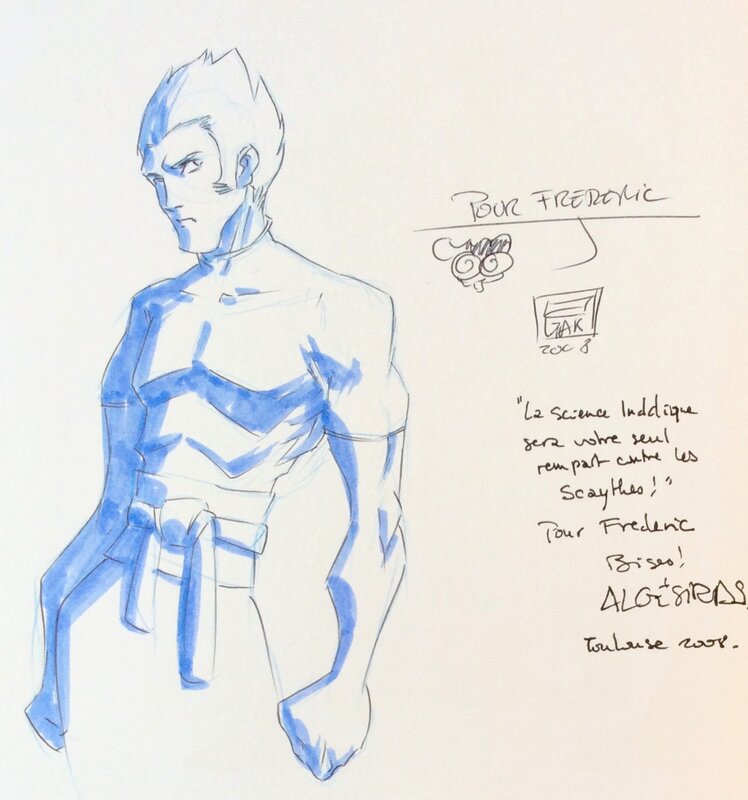 POUR FREDERIC
ZAK
2008
"La science Inddique
sera votre seul
rempart contre les
Scaythes!"
Pour Frederic
Bises!
ALGÉSIRAS
Toulouse 2008.